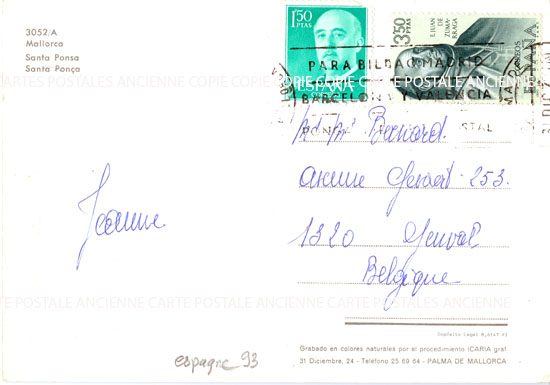 3052/A
Mallorca
Santa Ponsa
Santa Ponça
1'50
PTAS
ESPAÑA
3'50
PTAS
F. JUAN DE
ZUMA-
RRAGA
ESPAÑA
PARA BILBAO, MADRID
BARCELONA Y VALENCIA
PON
STAL
CARTES POSTALES ANCIENNE COPIE COPIE COPIE
Bernard
avenue Gevaert 253.
1320 Genval
Belgique
Jeanne
CARTE POSTALE ANCIENNE CARTE POSTALE ANCIENNE
Depósito Legal B,
Grabado en colores naturales por el procedimiento ICARIA graf
31 Diciembre, 24 - Teléfono 25 69 64 - PALMA DE MALLORCA
espagne 93